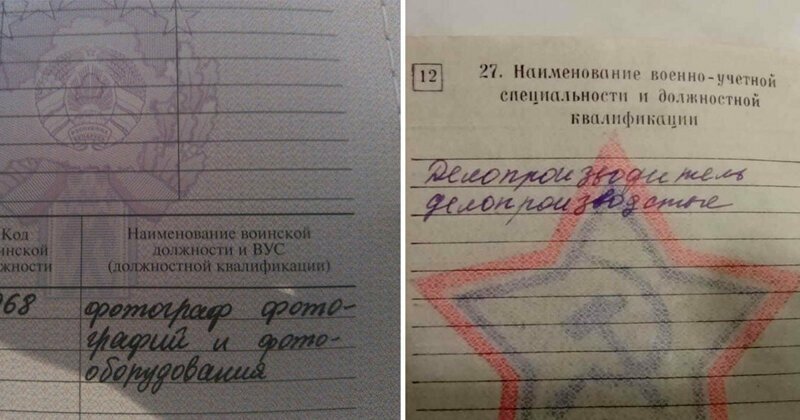 Код
инской
жности
Наименование воинской
должности и ВУС
(должностной квалификации)
068
фотограф фото-
графий и фото-
оборудования
12
27. Наименование военно-учетной
специальности и должностной
квалификации
Делопроизводитель
делопроизводстве